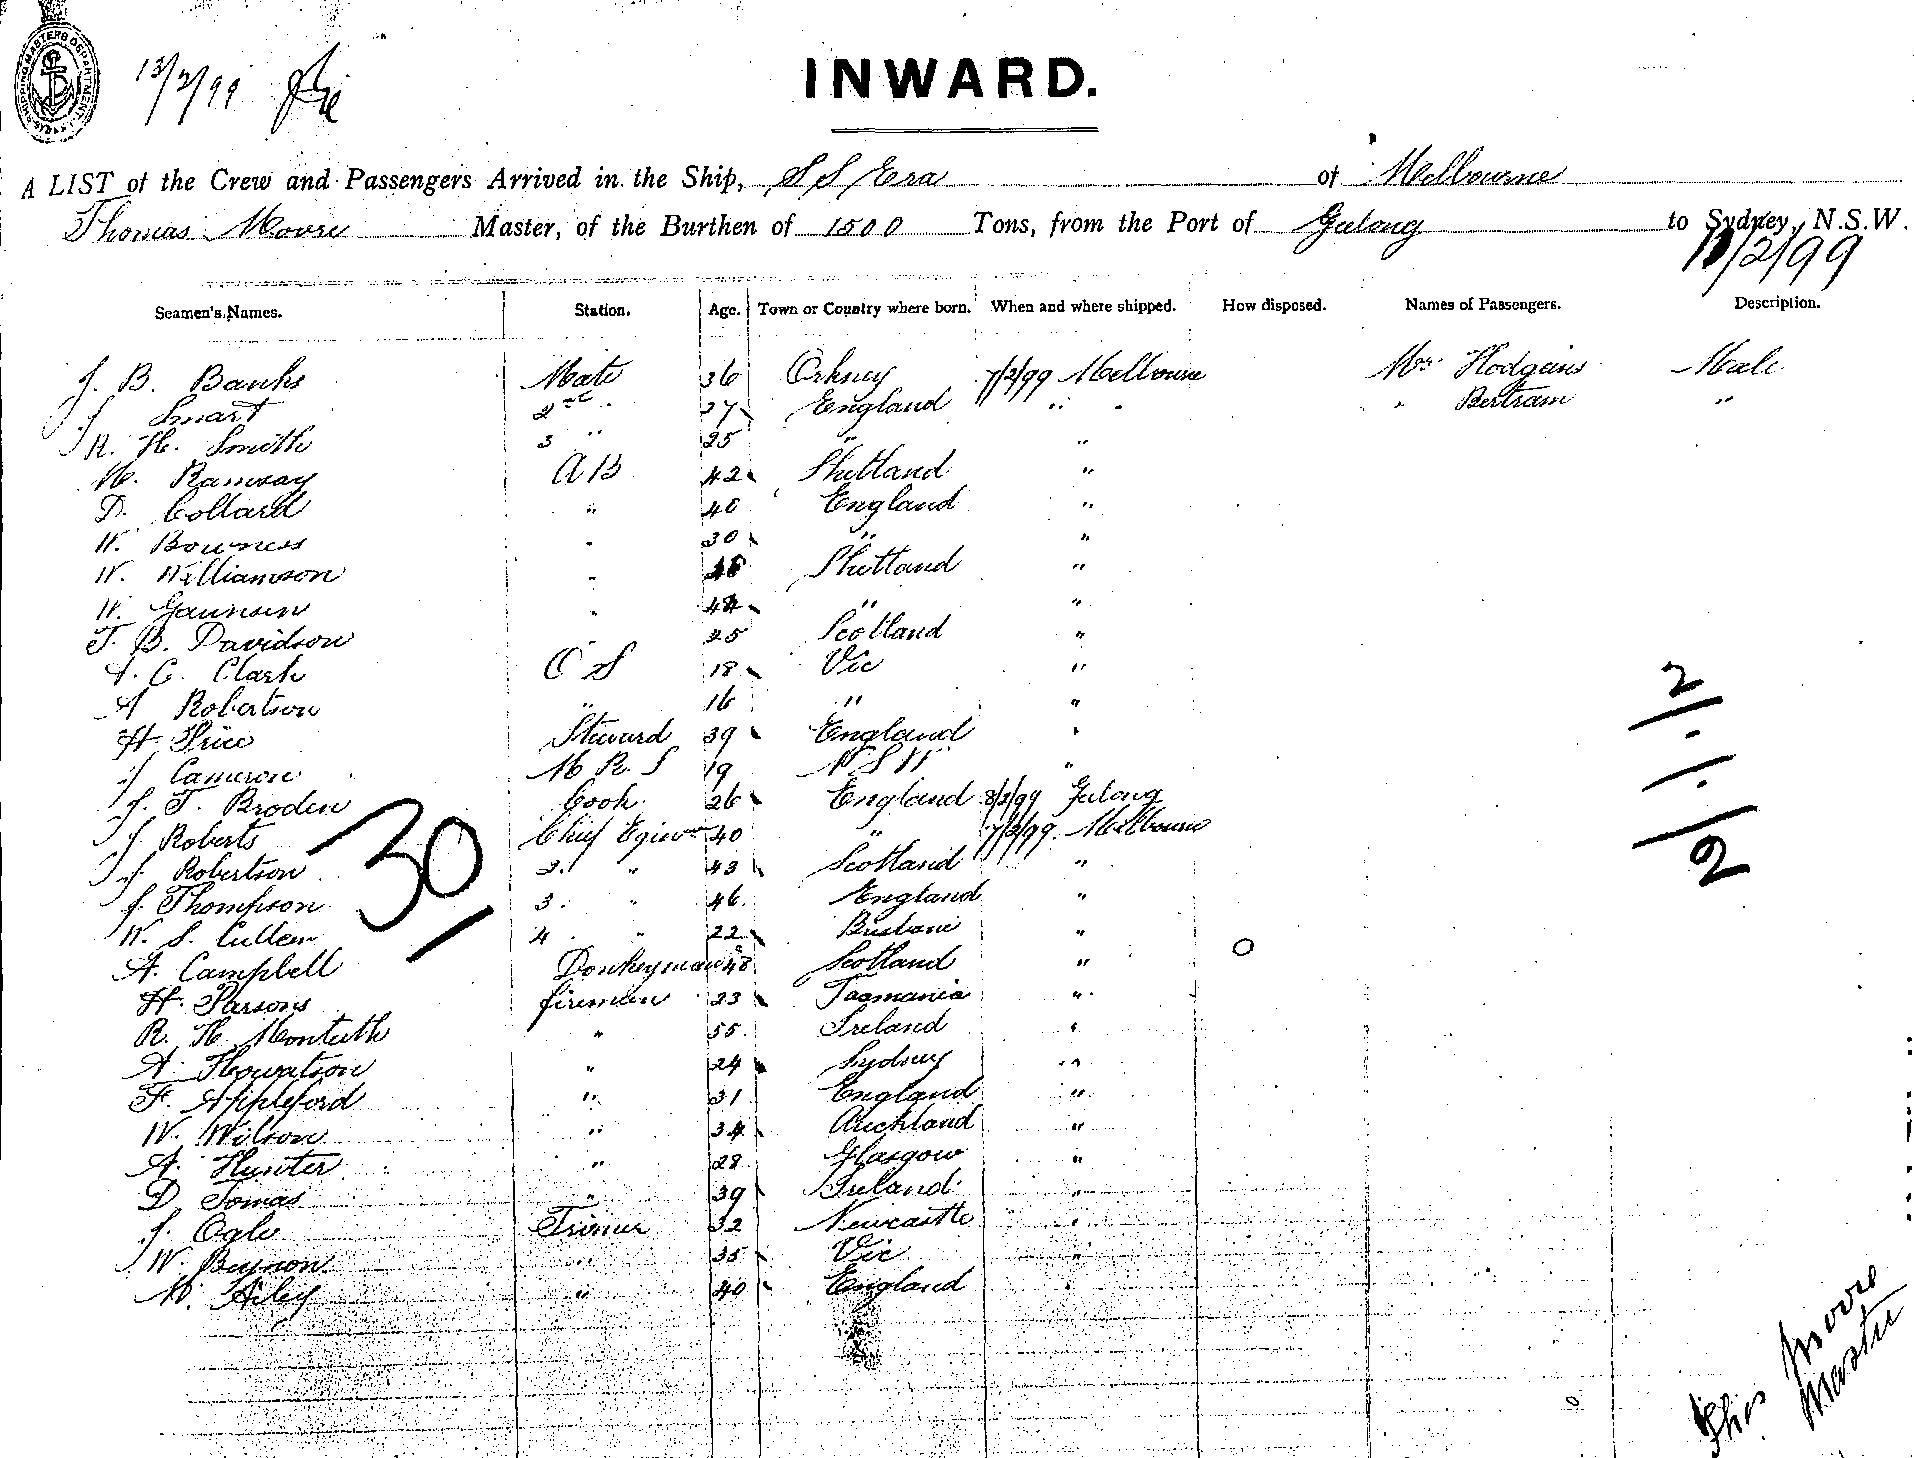 SHIPPING MASTERS DEPARTMENT
13/2/99
INWARD.
A LIST of the Crew and Passengers Arrived in the Ship, S S Era of Melbourne
Thomas Moore Master, of the Burthen of 1500 Tons, from the Port of Geelong to Sydney, N.S.W.
11/2/99
Seamen's Names. Station. Age. Town or Country where born. When and where shipped. How disposed. Names of Passengers. Description.
J. B. Banks Mate 36 Orkney 7/2/99 Melbourne Mr Hodgens Male
J. Smart 2nd " 27 England " " " Bertram "
R. H. Smith 3 " 25 " "
M. Ramsay A B 42 Shetland "
D. Collard " 40 England "
W. Bowness " 30 " "
W. Williamson " Shetland "
W. Gaunson " 44 " "
T. B. Davidson " 25 Scotland "
A. C. Clark O S 18 Vic "
A Robertson " 16 " "
H. Price Steward 39 England "
J Cameron M R S 19 N S W "
J. T. Broden Cook 26 England 8/2/99 Geelong
J Roberts Chief Egineer 40 " 7/2/99 Melbourne
J. Robertson 2. " 43 Scotland "
J. Thompson 3. " 46 England "
W. S. Cullen 4 " 22 Brisbane "
A. Campbell Donkeyman 48 Scotland "
H. Parsons firemen 23 Tasmania "
R. H. Monteith " 55 Ireland "
A. Howatson " 24 Sydney "
F. Appleford " 31 England "
W. Wilson " 34 Auckland "
A. Hunter " 28 Glasgow "
D Tomas " 39 Ireland "
J. Ogle Trimer 32 Newcastle "
W. Beynon " 35 Vic "
M. Hiley " 40 England "
30
2/./. /2
Thos Moore
Master